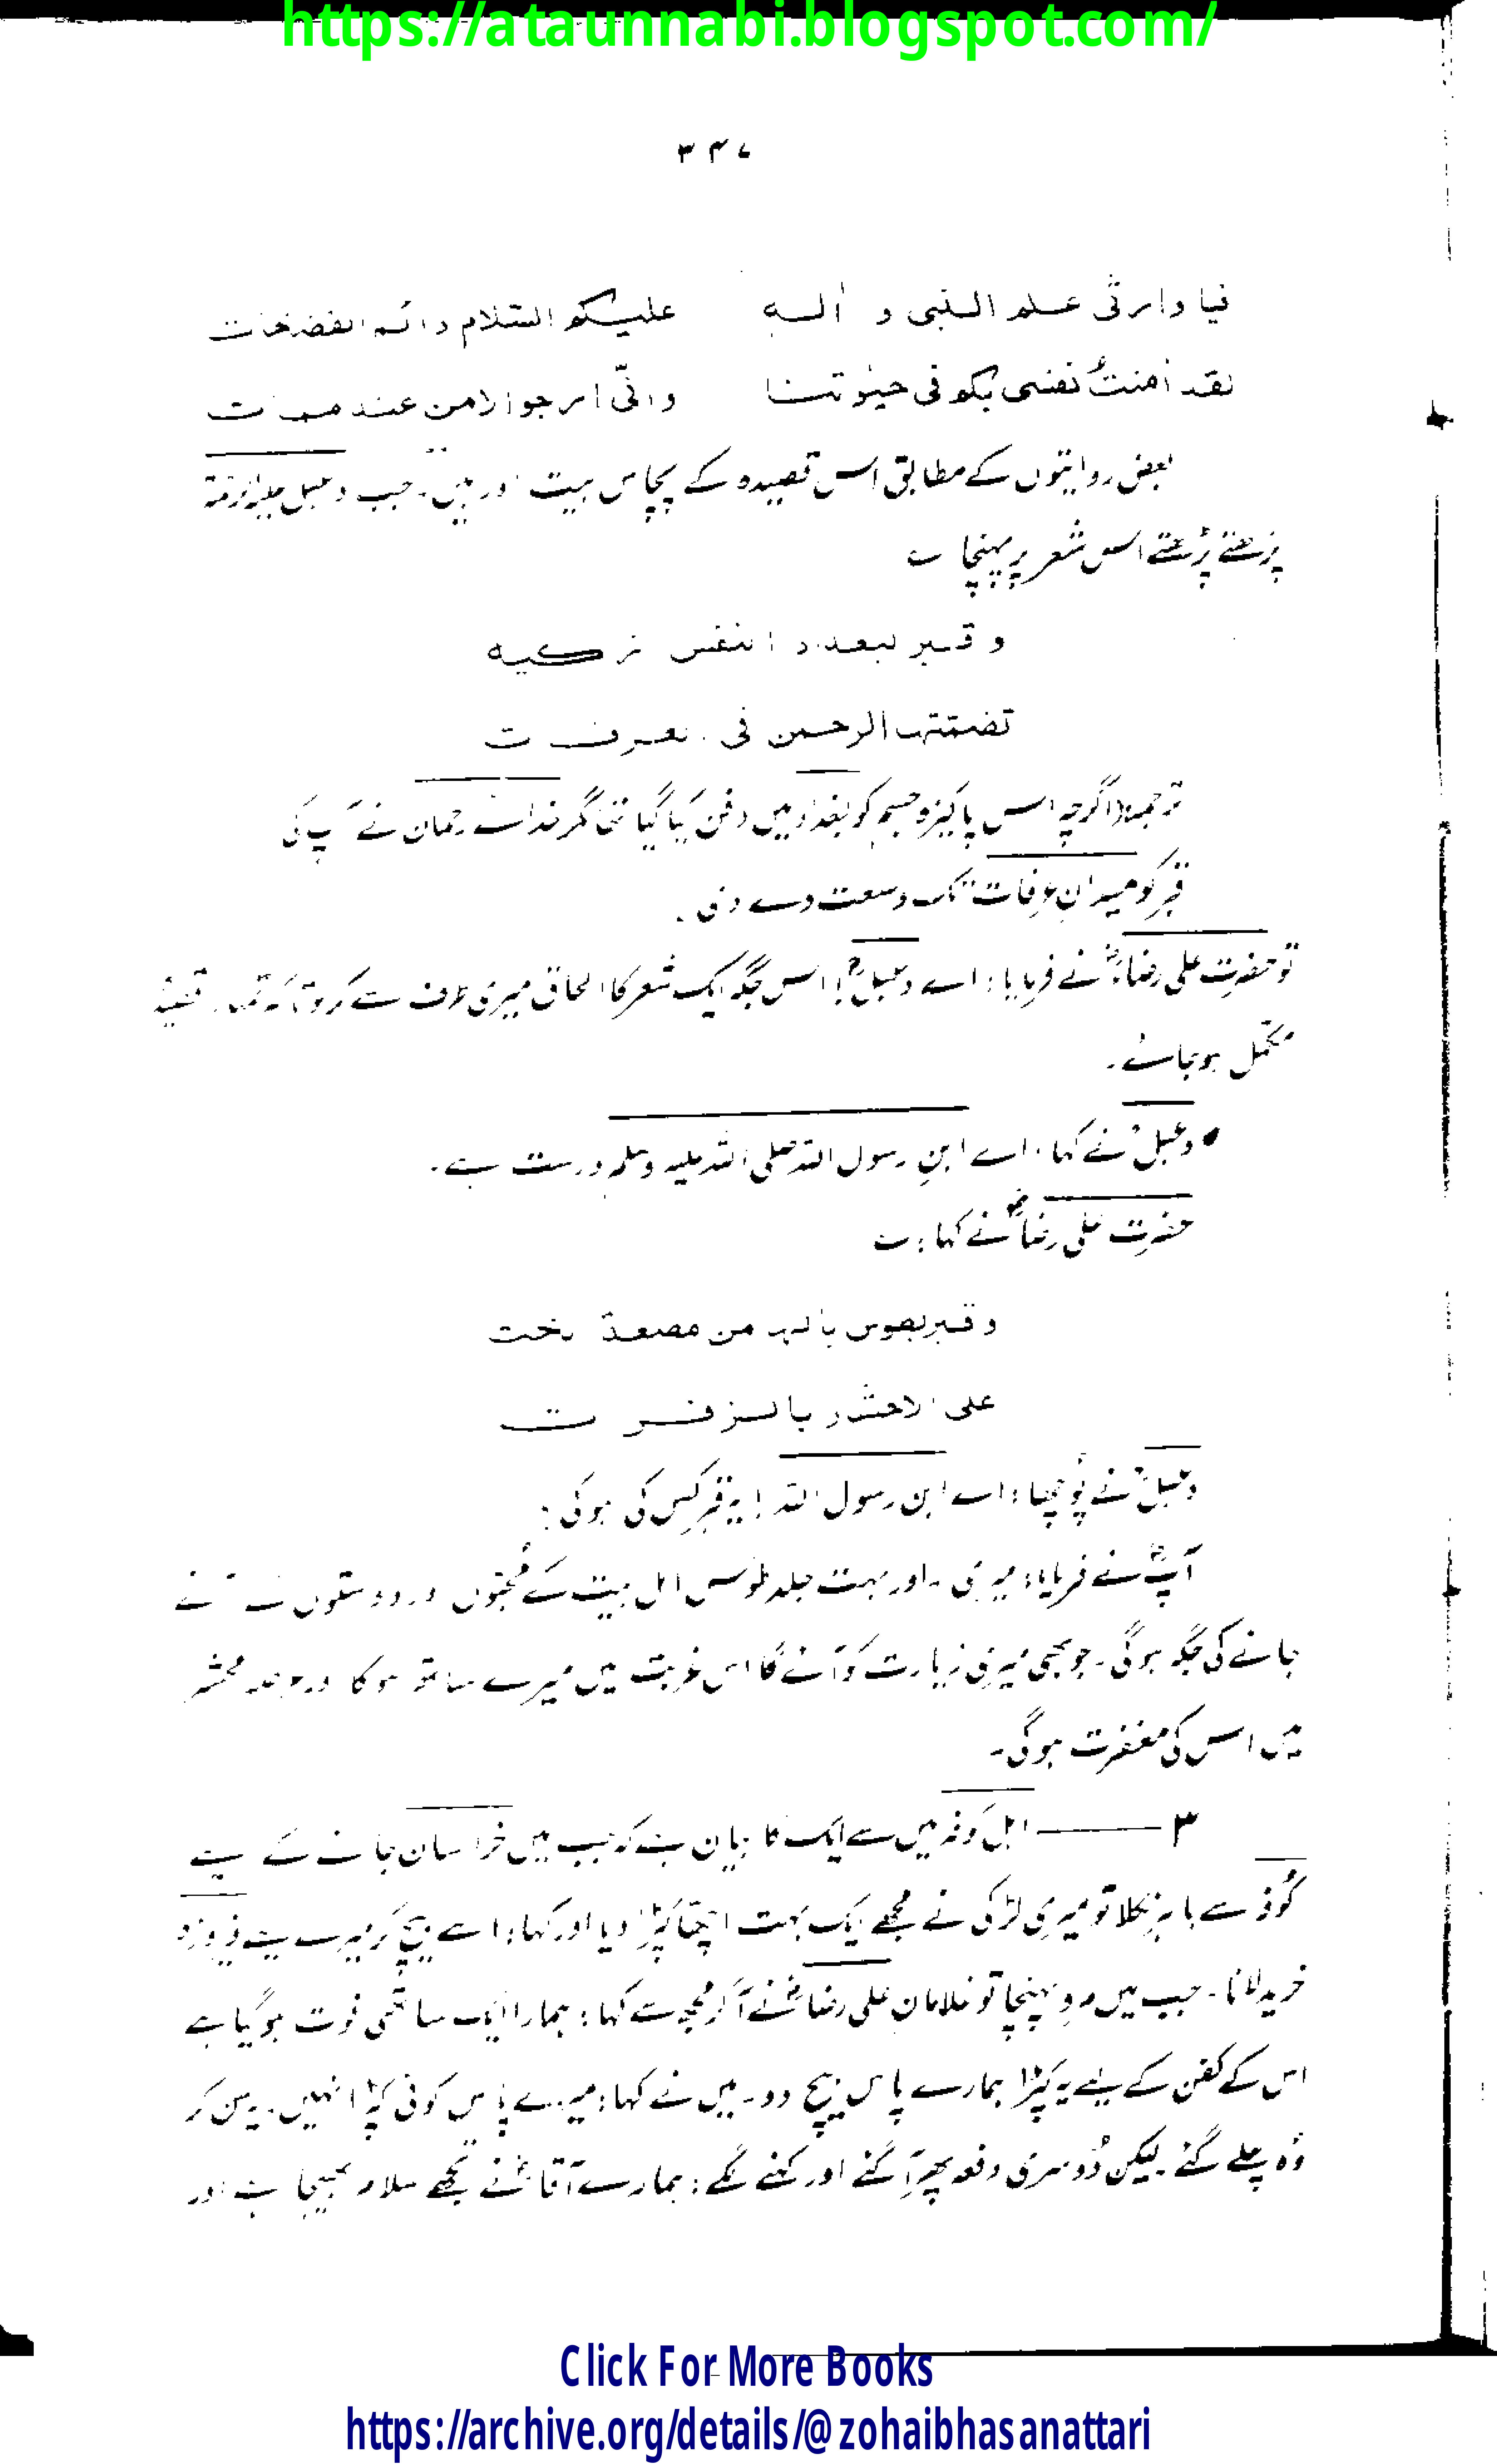 https://ataunnabi.blogspot.com/
۳۴۷
فيا وارثی علم النبی و اٰلہ علیکم السلام دائم النفخات
لقد اٰمنت نفسی بکم فی حیٰوتنا وانّی ارجوا الامن عند ممات
بعض روایتوں کے مطابق اس قصیدہ کے پچاس بیت اور ہیں۔ جب دعبل علیہ الرحمۃ
پڑھتے پڑھتے اس شعر پر پہنچا ؎
وقبر ببغداد النفس زکیہ
تضمنتہا الرحمن فی العرفات
ترجمہ: (اگرچہ اس پاکیزہ جسم کو بغداد میں دفن کیا گیا تھا مگر خدائے رحمان نے آپ کی
قبر کو میدانِ عرفات تک وسعت دے دی۔
تو حضرت علی رضاؓ نے فرمایا: اے دعبلؒ! اس جگہ ایک شعر کا الحاق میری طرف سے کر دو تاکہ تمہارا قصیدہ
مکمل ہو جائے۔
• دعبلؒ نے کہا: اے ابنِ رسول اللہ صلی اللہ علیہ وسلم درست ہے۔
حضرت علی رضاؓ نے کہا: ؎
وقبر بطوس یا لہا من مصیبۃ
علی الاحشاء بالزفرات
دعبلؒ نے پُوچھا: اے ابن رسول اللہ! یہ قبر کس کی ہوگی؟
آپؓ نے فرمایا: میری۔ اور بہت جلد طوس اہل بیت کے مُحبّوں اور دوستوں کے آنے
جانے کی جگہ ہوگی۔ جو بھی میری زیارت کو آئے گا اس غربت میں میرے ساتھ ہوگا اور عرصہ محشر
میں اس کی مغفرت ہوگی۔
۳ ——— اہل کوفہ میں سے ایک کا بیان ہے کہ جب میں خراسان جانے کے لیے
کُوفہ سے باہر نکلا تو میری لڑکی نے مجھے ایک بہت اچھا کپڑا دیا اور کہا: اسے بیچ کر میرے لیے فیروزہ
خرید لانا۔ جب میں مرو پہنچا تو غلامانِ علی رضاؓ نے آکر مجھ سے کہا: ہمارا ایک ساتھی فوت ہو گیا ہے
اس کے کفن کے لیے یہ کپڑا ہمارے پاس بیچ دو۔ میں نے کہا: میرے پاس کوئی کپڑا نہیں۔ یہ سن کر
وُہ چلے گئے۔ لیکن دُوسری دفعہ پھر آگئے اور کہنے لگے: ہمارے آقاؓ نے تجھے سلام بھیجا ہے اور
Click For More Books
https://archive.org/details/@zohaibhasanattari